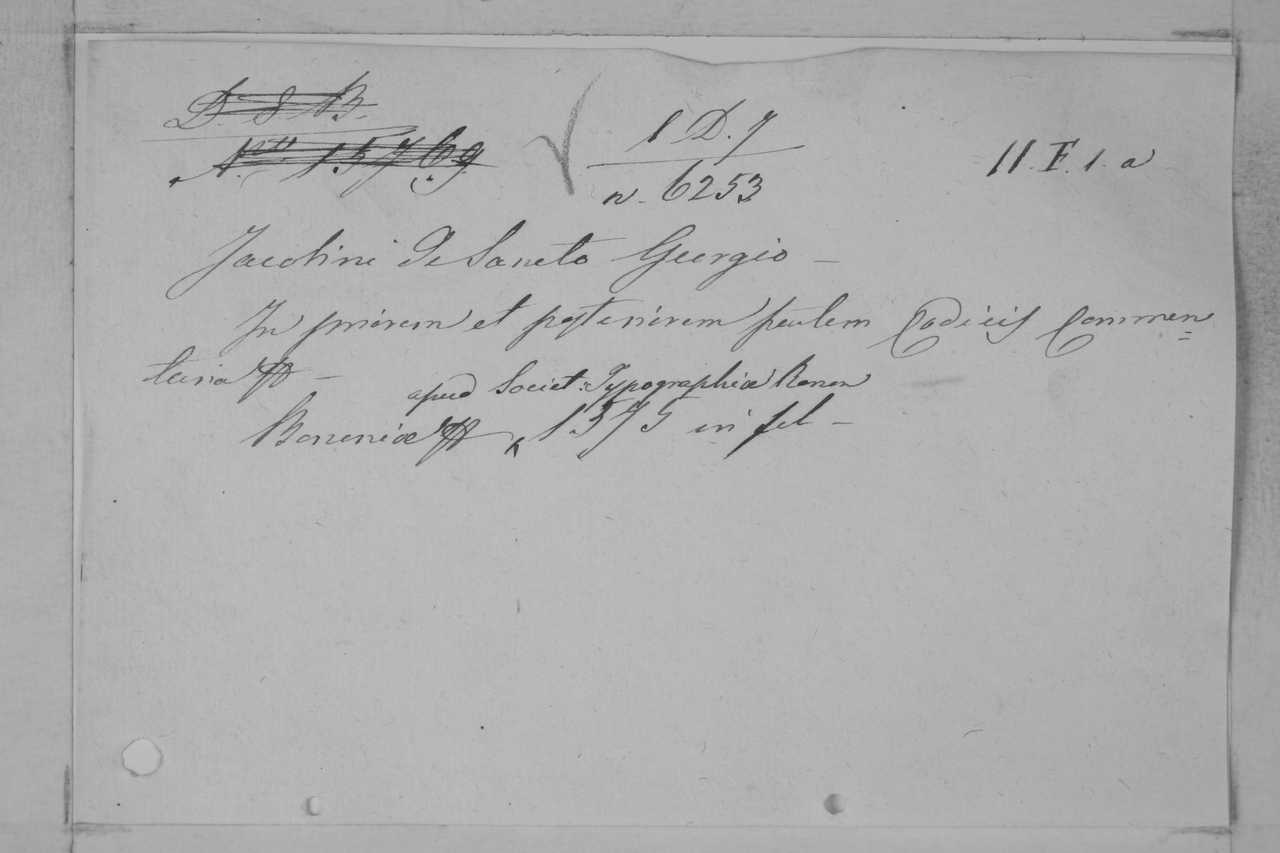 D. S B.
N.ro 15769
1 D. 7
n. 6253
11. F. 1. a
Jacobini de Sancto Georgio —
In priorem et posteriorem partem Codicis Commen=
taria —
apud Societ: Typographiæ Bonon
Bononiæ 1575 in fol —